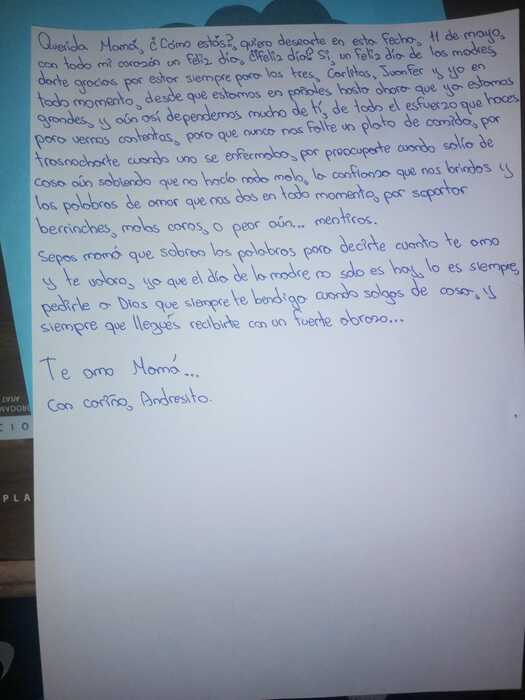 Querida Mamá, ¿Cómo estás?, quiero desearte en esta fecha, 11 de mayo,
con todo mi corazón un feliz día, ¿¡feliz día? Sí, un feliz día de las madres,
darte gracias por estar siempre para los tres, Carlitos, Juanfer y yo en
todo momento, desde que estamos en pañales hasta ahora que ya estamos
grandes, y aún así dependemos mucho de tí, de todo el esfuerzo que haces
para vernos contentos, para que nunca nos falte un plato de comida, por
trasnocharte cuando uno se enfermaba, por preocuparte cuando salía de
casa aún sabiendo que no hacía nada malo, la confianza que nos brindas y
las palabras de amor que nos das en todo momento, por soportar
berrinches, malas caras, o peor aún... mentiras.
Sepas mamá que sobran las palabras para decirte cuanto te amo
y te valoro, ya que el día de la madre no solo es hoy, lo es siempre,
pedirle a Dios que siempre te bendiga cuando salgas de casa, y
siempre que llegués recibirte con un fuerte abrazo...
Te amo Mamá...
con cariño, Andresito.
CIO
PLA